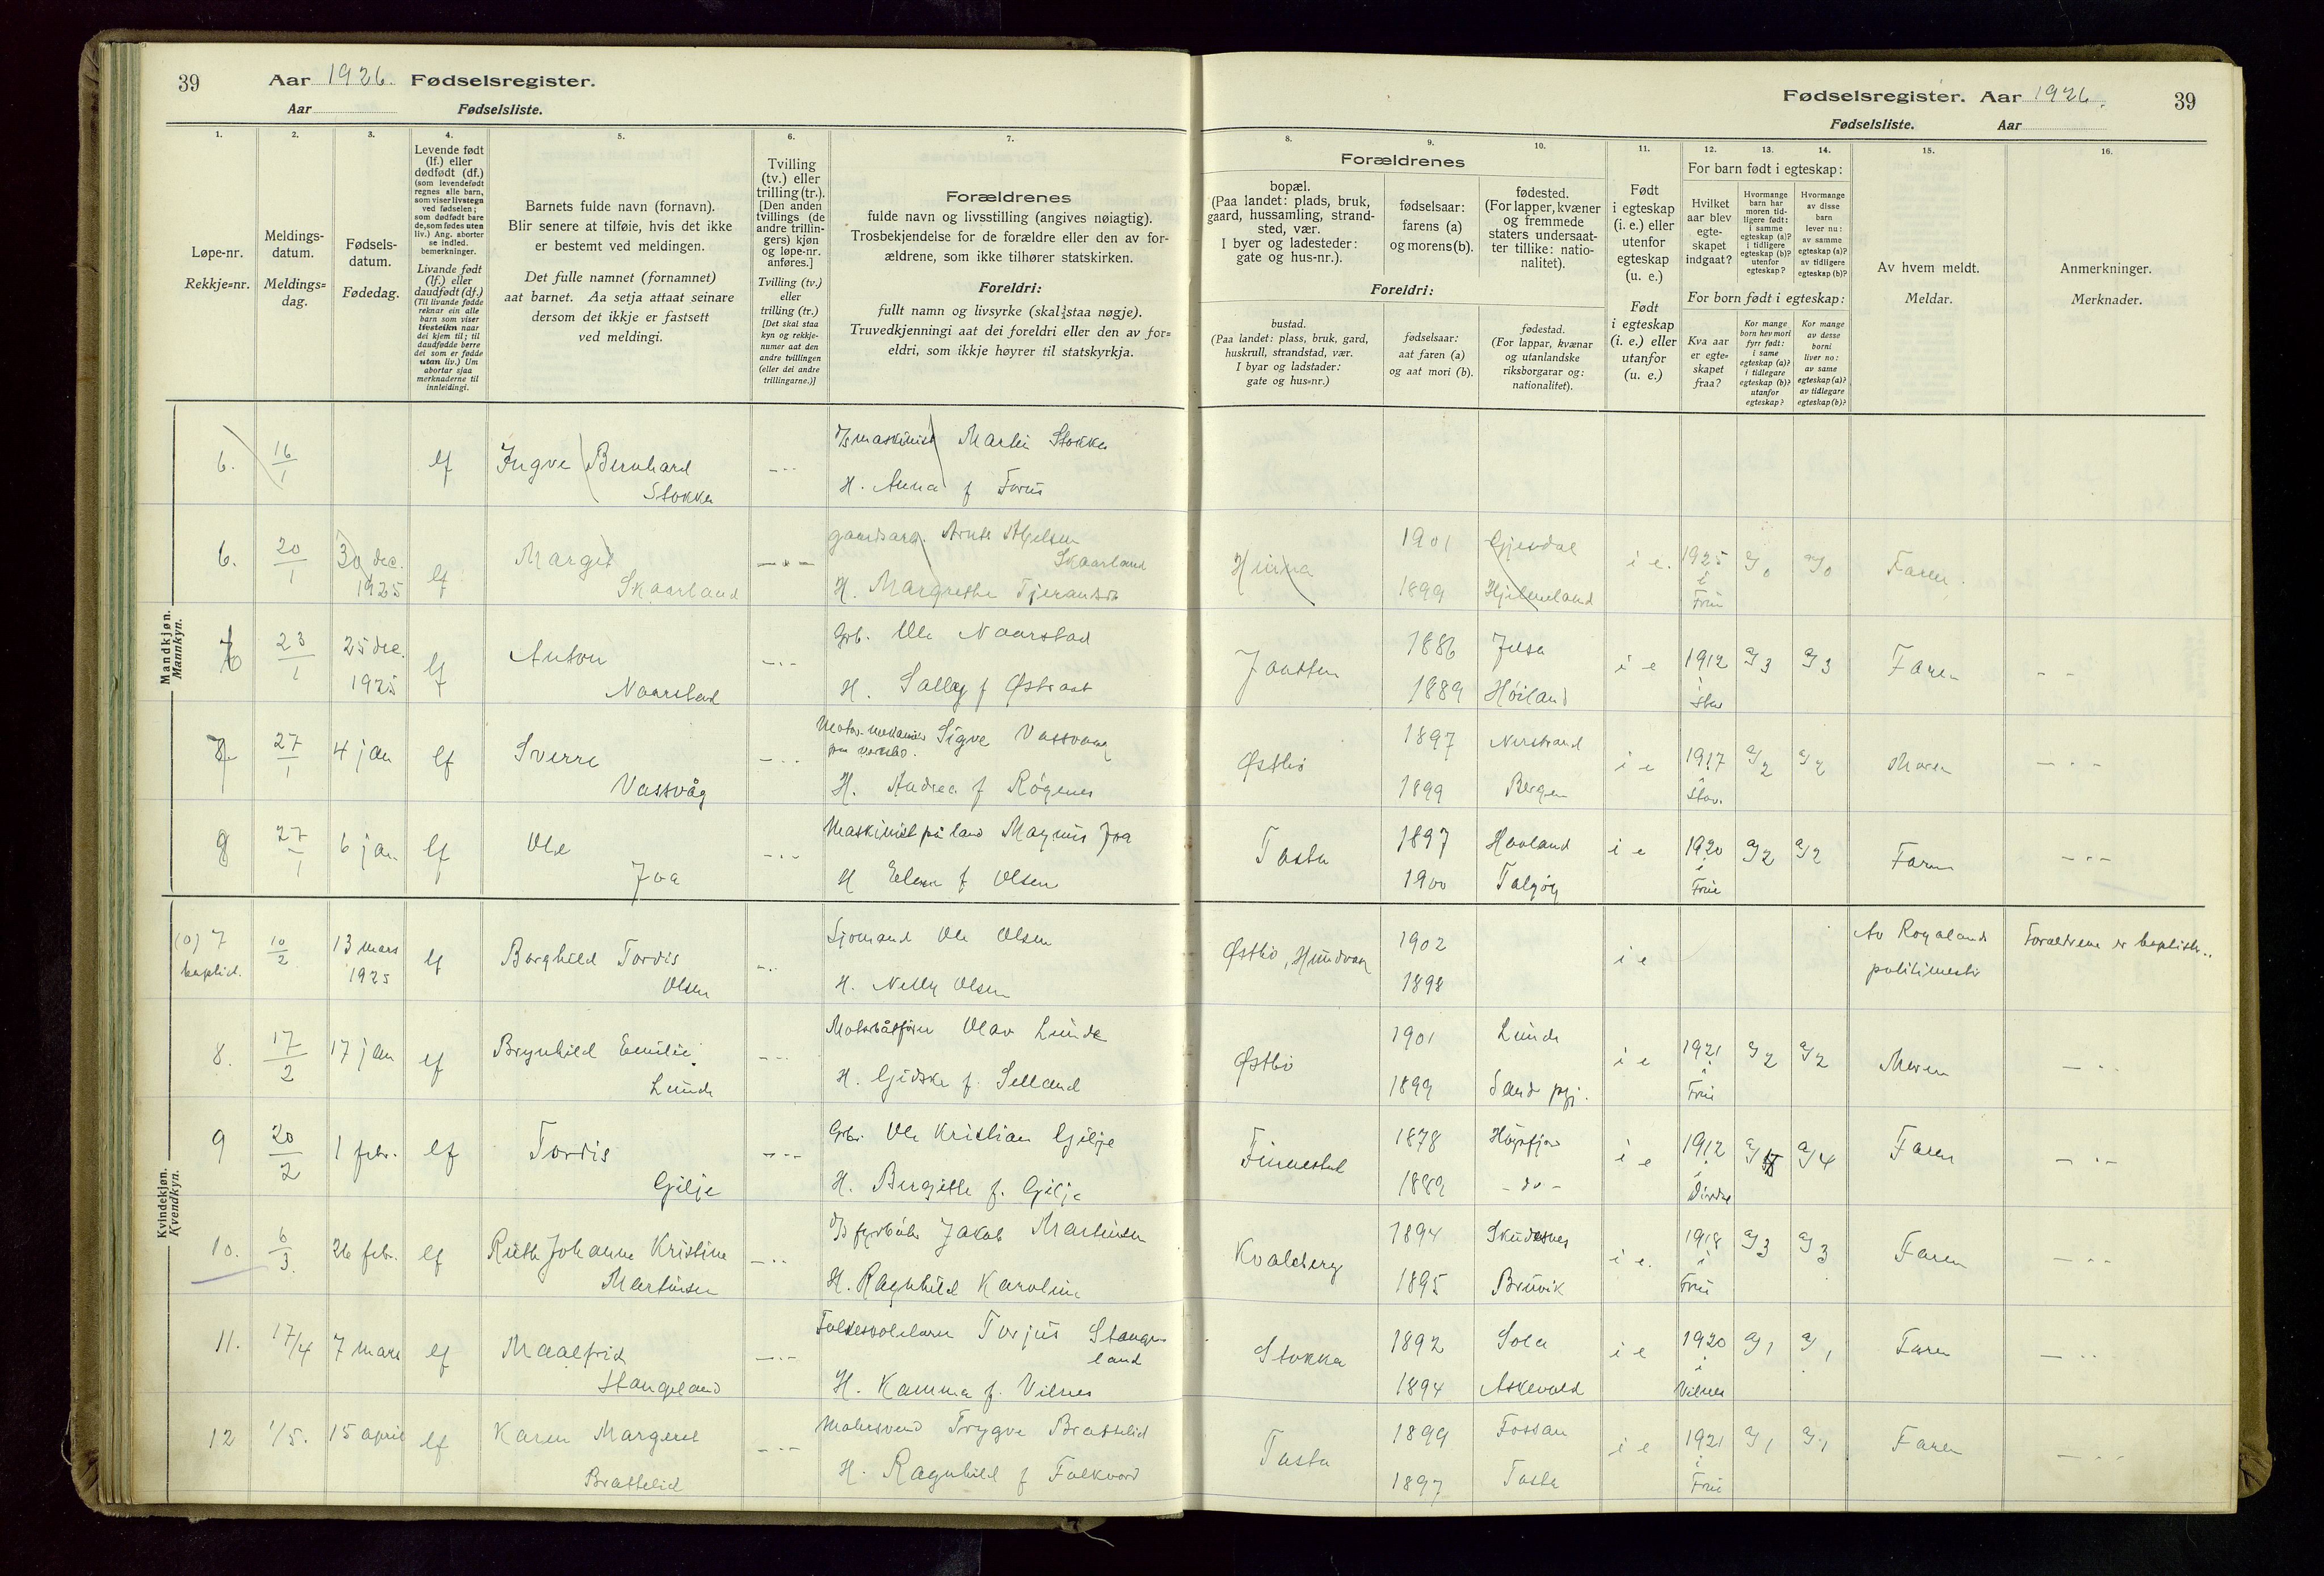 39 Aar 1926. Fødselsregister.
Aar Fødselsliste.
1. 2. 3. 4. 5. 6. 7.
Løpe-nr.
Rekkje-nr.
Meldings-
datum.
Meldings-
dag.
Fødsels-
datum.
Fødedag.
Levende født
(lf.) eller
dødfødt (df.)
(som levendefødt
regnes alle barn,
som viser livstegn
ved fødselen;
som dødfødt bare
de, som fødes uten
liv.) Ang. aborter
se indled.
bemerkninger.
Livande født
(lf.) eller
daudfødt (df.)
(Til livande fødde
reknar ein alle
barn som viser
livsteikn naar
dei kjem til; til
daudfødde berre
dei som er fødde
utan liv.) Um
abortar sjaa
merknaderne til
innleidingi.
Barnets fulde navn (fornavn).
Blir senere at tilføie, hvis det ikke
er bestemt ved meldingen.
Det fulle namnet (fornamnet)
aat barnet. Aa setja attaat seinare
dersom det ikkje er fastsett
ved meldingi.
Tvilling
(tv.) eller
trilling (tr.).
[Den anden
tvillings (de
andre trillin-
gers) kjøn
og løpe-nr.
anføres.]
Tvilling (tv.)
eller
trilling (tr.)
[Det skal staa
kyn og rekkje-
numer aat den
andre tvillingen
(eller dei andre
trillingarne.)]
Forældrenes
fulde navn og livsstilling (angives nøiagtig).
Trosbekjendelse for de forældre eller den av for-
ældrene, som ikke tilhører statskirken.
Foreldri:
fullt namn og livsyrke (skal staa nøgje).
Truvedkjenningi aat dei foreldri eller den av for-
eldri, som ikkje høyrer til statskyrkja.
Mandkjøn.
Mannkyn.
6. 16/1 lf Ingve Bernhard
Stokka
Martin Stokka
H. Anna f Forus
6. 20/1 30 dec.
1925 lf Margit
Skaarland
Skaarland
H. Margrethe
23/1 25 dec.
1925 lf Anton
Naarstad
Grb. Ole Naarstad
H. Sally f Østraat
27/1 4 jan lf Sverre
Vassvåg
Sigve Vassvaag
H. Andrea f Røgenes
8 27/1 6 jan lf Ole
Joa
Maskinist på land Magnus Joa
H Elen f Olsen
Kvindekjøn.
Kvendkyn.
(0) 7
baptist.
10/2 13 mars
1925 lf Borghild Tordis
Olsen
Sjømand Ole Olsen
H. Nelly Olsen
8. 17/2 17 jan lf Brynhild Emilie
Lunde
Motorbåtfører Olav Lunde
H. Gidske f. Selland
9 20/2 1 febr. lf Tordis
Gilje
Grbr. Ole Kristian Gilje
H. Bergitte f. Gilje
10. 6/3. 26 febr. lf Ruth Johanne Kristine
Martinsen
D/S fyrbøter Jakob Martinsen
H. Ragnhild Karoline
11. 17/4 7 mars lf Maalfrid
Stangeland
Torjus Stange
land
H. Kamma f. Vilnes
12 1/5. 15 april lf Karen Margret
Brattelid
Malersvend Trygve Brattelid
H. Ragnhild f Folkvord
Fødselsregister. Aar 1926. 39
Fødselsliste. Aar
8. 9. 10. 11. 12. 13. 14. 15. 16.
Forældrenes
bopæl.
(Paa landet: plads, bruk,
gaard, hussamling, strand-
sted, vær.
I byer og ladesteder:
gate og hus-nr.).
fødselsaar:
farens (a)
og morens (b).
fødested.
(For lapper, kvæner
og fremmede
staters undersaat-
ter tillike: natio-
nalitet).
Foreldri:
bustad.
(Paa landet: plass, bruk, gard,
huskrull, strandstad, vær.
I byar og ladstader:
gate og hus-nr.)
fødselsaar:
aat faren (a)
og aat mori (b).
fødestad.
(For lappar, kvænar
og utanlandske
riksborgarar og:
nationalitet).
Født
i egteskap
(i. e.) eller
utenfor
egteskap
(u. e.)
Født
i egteskap
(i. e.) eller
utanfor
(u. e.)
For barn født i egteskap:
Hvilket
aar blev
egte-
skapet
indgaat?
Hvormange
barn har
moren tid-
ligere født:
i samme
egteskap (a)?
i tidligere
egteskap (b)?
utenfor
egteskap?
Hvormange
av disse
barn
lever nu:
av samme
egteskap (a)?
av tidligere
egteskap (b)?
For born født i egteskap:
Kva aar
er egte-
skapet
fraa?
Kor mange
born hev mori
fyrr født:
i same
egteskap (a)?
i tidlegare
egteskap (b)?
utanfor
egteskap?
Kor mange
av desse
borni
liver no:
av same
egteskap (a)?
av tidlegare
egteskap (b)?
Av hvem meldt.
Meldar.
Anmerkninger.
Merknader.
Hinna 1901 Gjesdal i e. 1925 a/0 a/0 Faren.
1899 Hjelmeland i
Frue
Jaatten 1886 Jelsa i e 1912 a/3 a/3 Faren
1889 Høiland i
Østbø 1897 Nerstrand i e 1917 a/2 a/2 Moren
1899 Bergen i
Stav.
Tasta 1897 i e 1920 a/2 a/2 Faren
1900 Talgøy i
Frue
Østbø, Hundvaag 1902 i e Av Rogaland Forældrene er baptister.
1898 politimester
Østbø 1901 Lunde i e 1921 a/2 a/2 Moren
1899 Sand pgj. i
Frue
Finnestad 1878 Høgsfjord i e 1912 a/4 Faren
1889 - do - i
Dirdal
Kvaleberg 1894 Skudesnes i e. 1918 a/3 a/3 Faren
1895 Bruvik i
Frue
Stokka 1892 Sola i e 1920 a/1 a/1 Faren
1894 Askevold i
Vilnes
Tasta 1899 Fossan i e 1921 a/1 a/1 Faren
1897 Tasta i
Frue